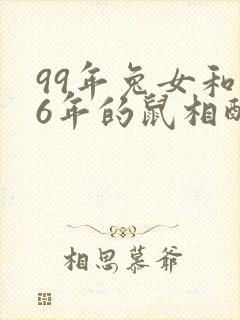 99年兔女和
6年的鼠相配
相思慕爷